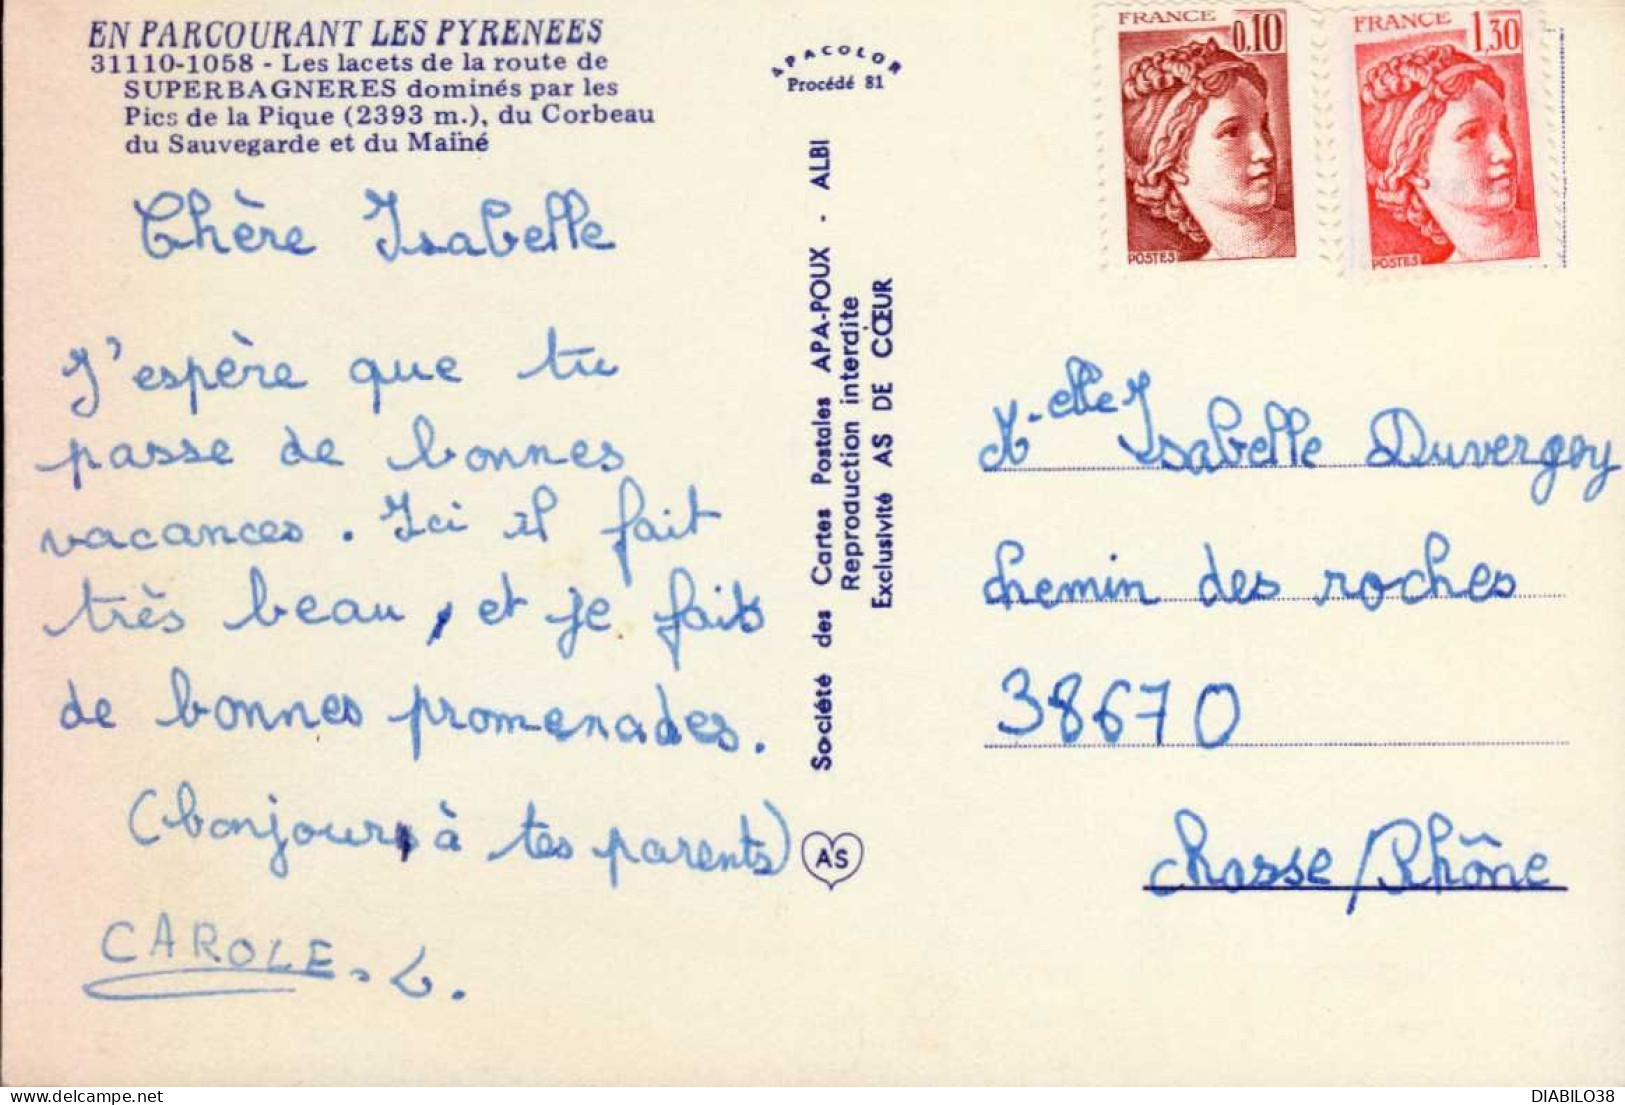 EN PARCOURANT LES PYRENEES
31110-1058 - Les lacets de la route de
SUPERBAGNERES dominés par les
Pics de la Pique (2393 m.), du Corbeau
du Sauvegarde et du Maïné
Chère Isabelle
J'espère que tu
passe de bonnes
vacances. Ici il fait
très beau, et je fais
de bonnes promenades.
(bonjour à tes parents)
CAROLE. L.
APACOLOR
Procédé 81
Société des Cartes Postales APA-POUX - ALBI
Reproduction interdite
Exclusivité AS DE CŒUR
AS
FRANCE
0,10
POSTES
FRANCE
1,30
POSTES
M-elle Isabelle Duvergey
chemin des roches
38670
Chasse/Rhône
DIABILO38